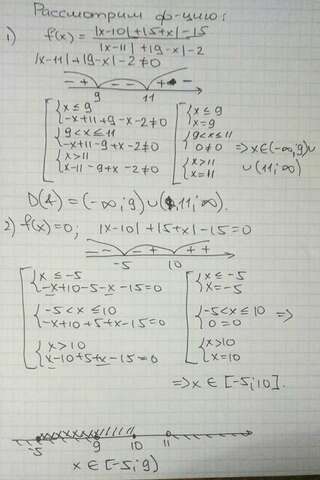 Рассмотрим ф-цию:
1) f(x) = |x-10|+|5+x|-15 / |x-11|+|9-x|-2
|x-11|+|9-x|-2≠0
- + - - + -
9 11
{x ≤ 9
-x+11+9-x-2≠0
{9<x≤11
-x+11-9+x-2≠0
{x>11
x-11-9+x-2≠0
{x ≤ 9
x=9
{9<x≤11
0≠0
{x>11
x=11
=> x∈(-∞;9)∪
∪(11;∞)
D(f) = (-∞;9)∪(11;∞).
2) f(x)=0; |x-10|+|5+x|-15=0
- - - + + +
-5 10
{x ≤ -5
-x+10-5-x-15=0
{-5<x≤10
-x+10+5+x-15=0
{x>10
x-10+5+x-15=0
{x ≤ -5
x=-5
{-5<x≤10
0=0
{x>10
x=10
=>
=> x∈[-5;10].
-5 9 10 11
x∈[-5;9)